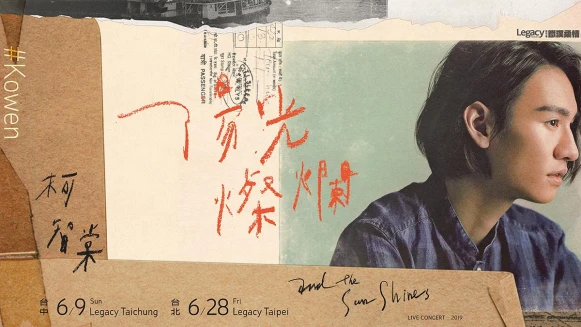 #Kowen
Legacy
PASSENGER
光
燦爛
柯
智棠
and the
Sun Shines
台中 6/9 Sun Legacy Taichung
台北 6/28 Fri Legacy Taipei
LIVE CONCERT 2019